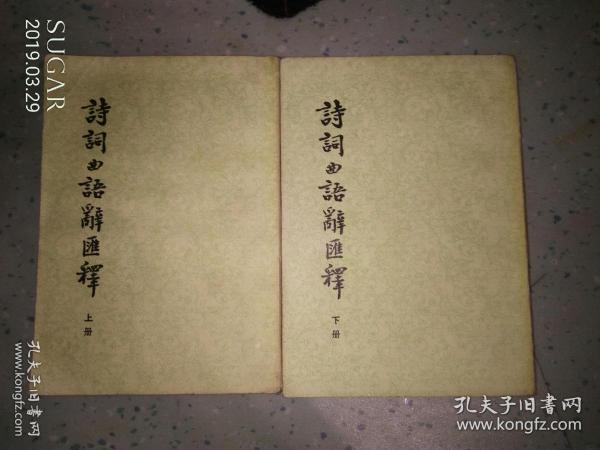 SUGAR
2019.03.29
詩詞曲語辭匯釋
上册
詩詞曲語辭匯釋
下册
孔夫子旧书网
www.kongfz.com
孔夫子旧书网
www.kongfz.com